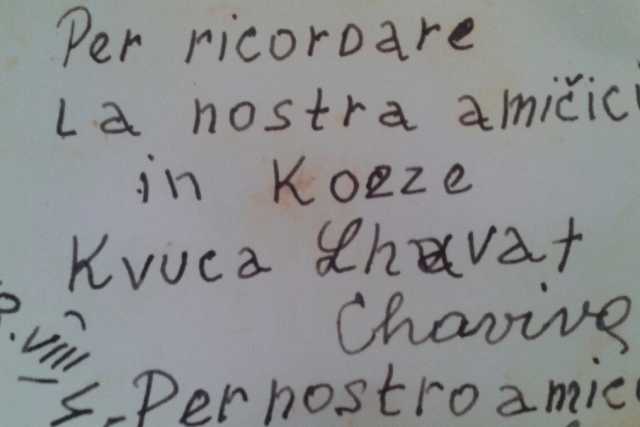 Per ricordare
La nostra amičici
in Koeze
Kvuca Lhavat
Chaviva
VIII
Per nostro amic